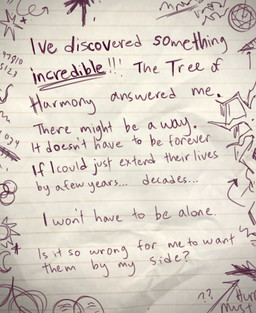 I've discovered something
incredible!!! The Tree of
Harmony answered me.
There might be a way.
It doesn't have to be forever
If I could just extend their lives
by a few years... decades...
I won't have to be alone.
Is it so wrong for me to want
them by my side?
??
must